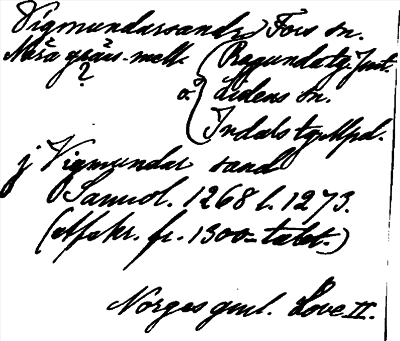 Vigmundarsand, Fors sn.
Nära gräns mell. Ragunda tg Jmt.
?
o. Lidens sn.
Indals tg Mpd.
j Vigmundar sand
Samvol. 1268 l. 1273.
(Afskr. fr. 1300-talet.)
Norges gml. Love II.